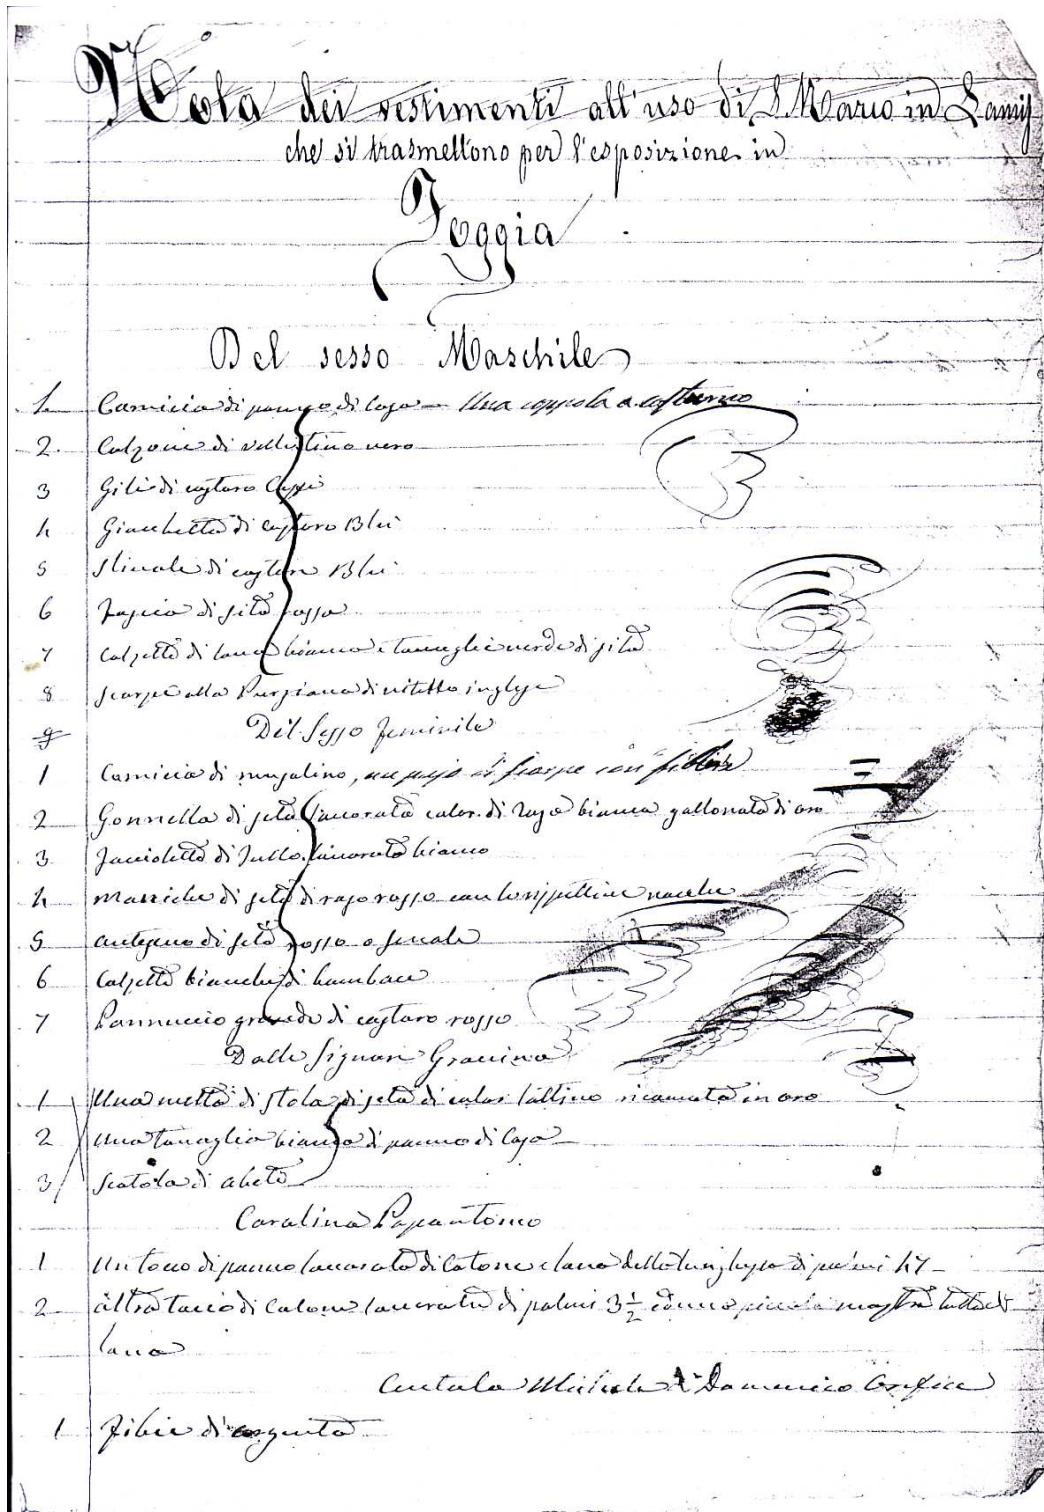 Nota dei vestimenti all'uso di S. Marco in Lamis
che si trasmettono per l'esposizione in
Foggia
Del sesso Maschile
1 Camicia di panno di casa - Una coppola a costume
2. Calzone di vellutino nero
3 Gilè di castoro
4 Giacchetta di castoro Blu
5 Stivale di castoro Blu
6 Fascia di seta rossa
7 Calzette di lana bianca e verde di seta
8 Scarpe alla di vitello inglese
9
Del Sesso Feminile
1 Camicia di musolino, un pajo di scarpe con fibbie
2 Gonnella di seta lavorata color di raso bianca gallonata di oro
3 di Tullo lavorato bianco
4 Maniche di seta di raso rosso con
5 di seta rosso
6 Calzette bianche di bambace
7 Pannuccio grande di castoro rosso
Dalle Signore Gravina
1 Una metta di stola di seta di color lattino ricamata in oro
2 Una tovaglia bianca di panno di casa
3 Scatola di abete
Carolina Papantonio
1 Un tocco di panno lavorato di cotone e lana della lunghezza di palmi
2 altro di cotone lavorato di palmi 3 1/2 piccola mostra tutta di
lana
Michele Domenico Orefice
1 Fibie di argento